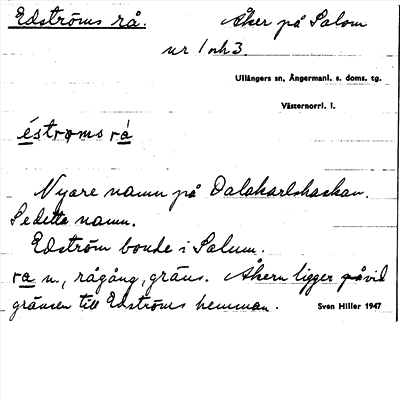 Edströms rå.
Åker på Salom
nr 1 och 3.
Ullångers sn, Ångermanl. s. doms. tg.
Västernorrl. l.
éstroms rá
Nyare namn på Dalakarlskaskan.
Se detta namn.
Edström bonde i Salum.
ra n., rågång, gräns. Åkern ligger på vid
gränsen till Edströms hemman.
Sven Hiller 1947